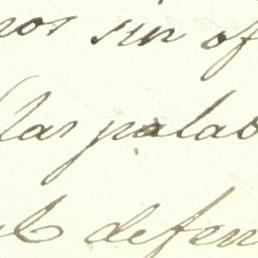 nos sin of
llas palab
al defen